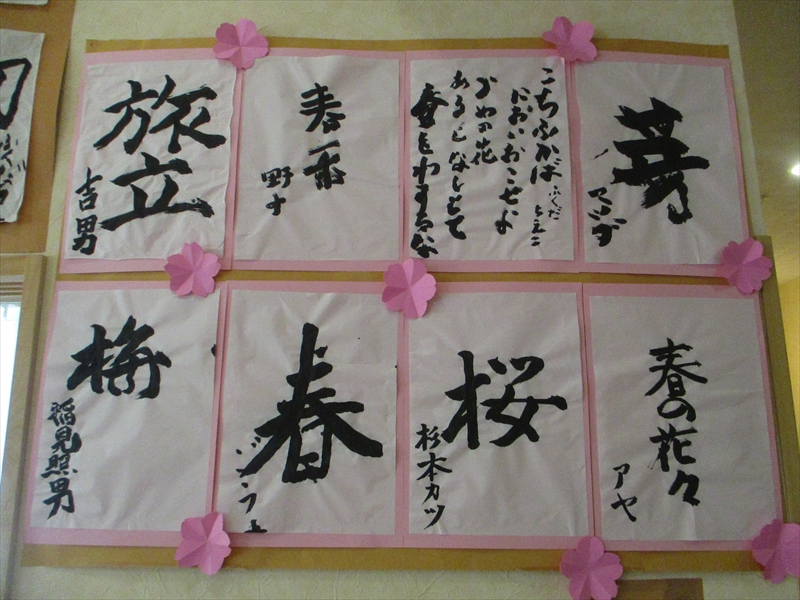 旅立
吉男
春一番
こちふかば
においおこせよ
うめの花
あるじなしとて
春をわするな
ふくだ
芽
梅
稲見照男
春
桜
杉本カツ
春の花々
アヤ